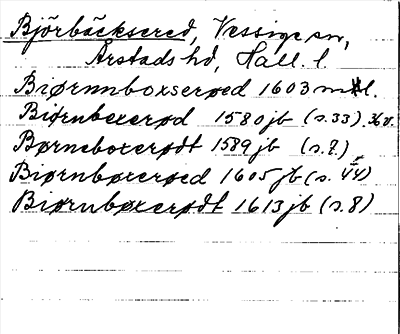 Björbäcksered, Vessige sn,
Årstads hd, Hall. l.
Biørnnboxserøed 1603 ml.
Biørnbexerød 1580 jb (s. 33). 36 v.
Børneboxerødt 1589 jb (s. 2)
Biørnbøxerøed 1605 jb (s. 44)
Biørnbøxerødt 1613 jb (s. 8)